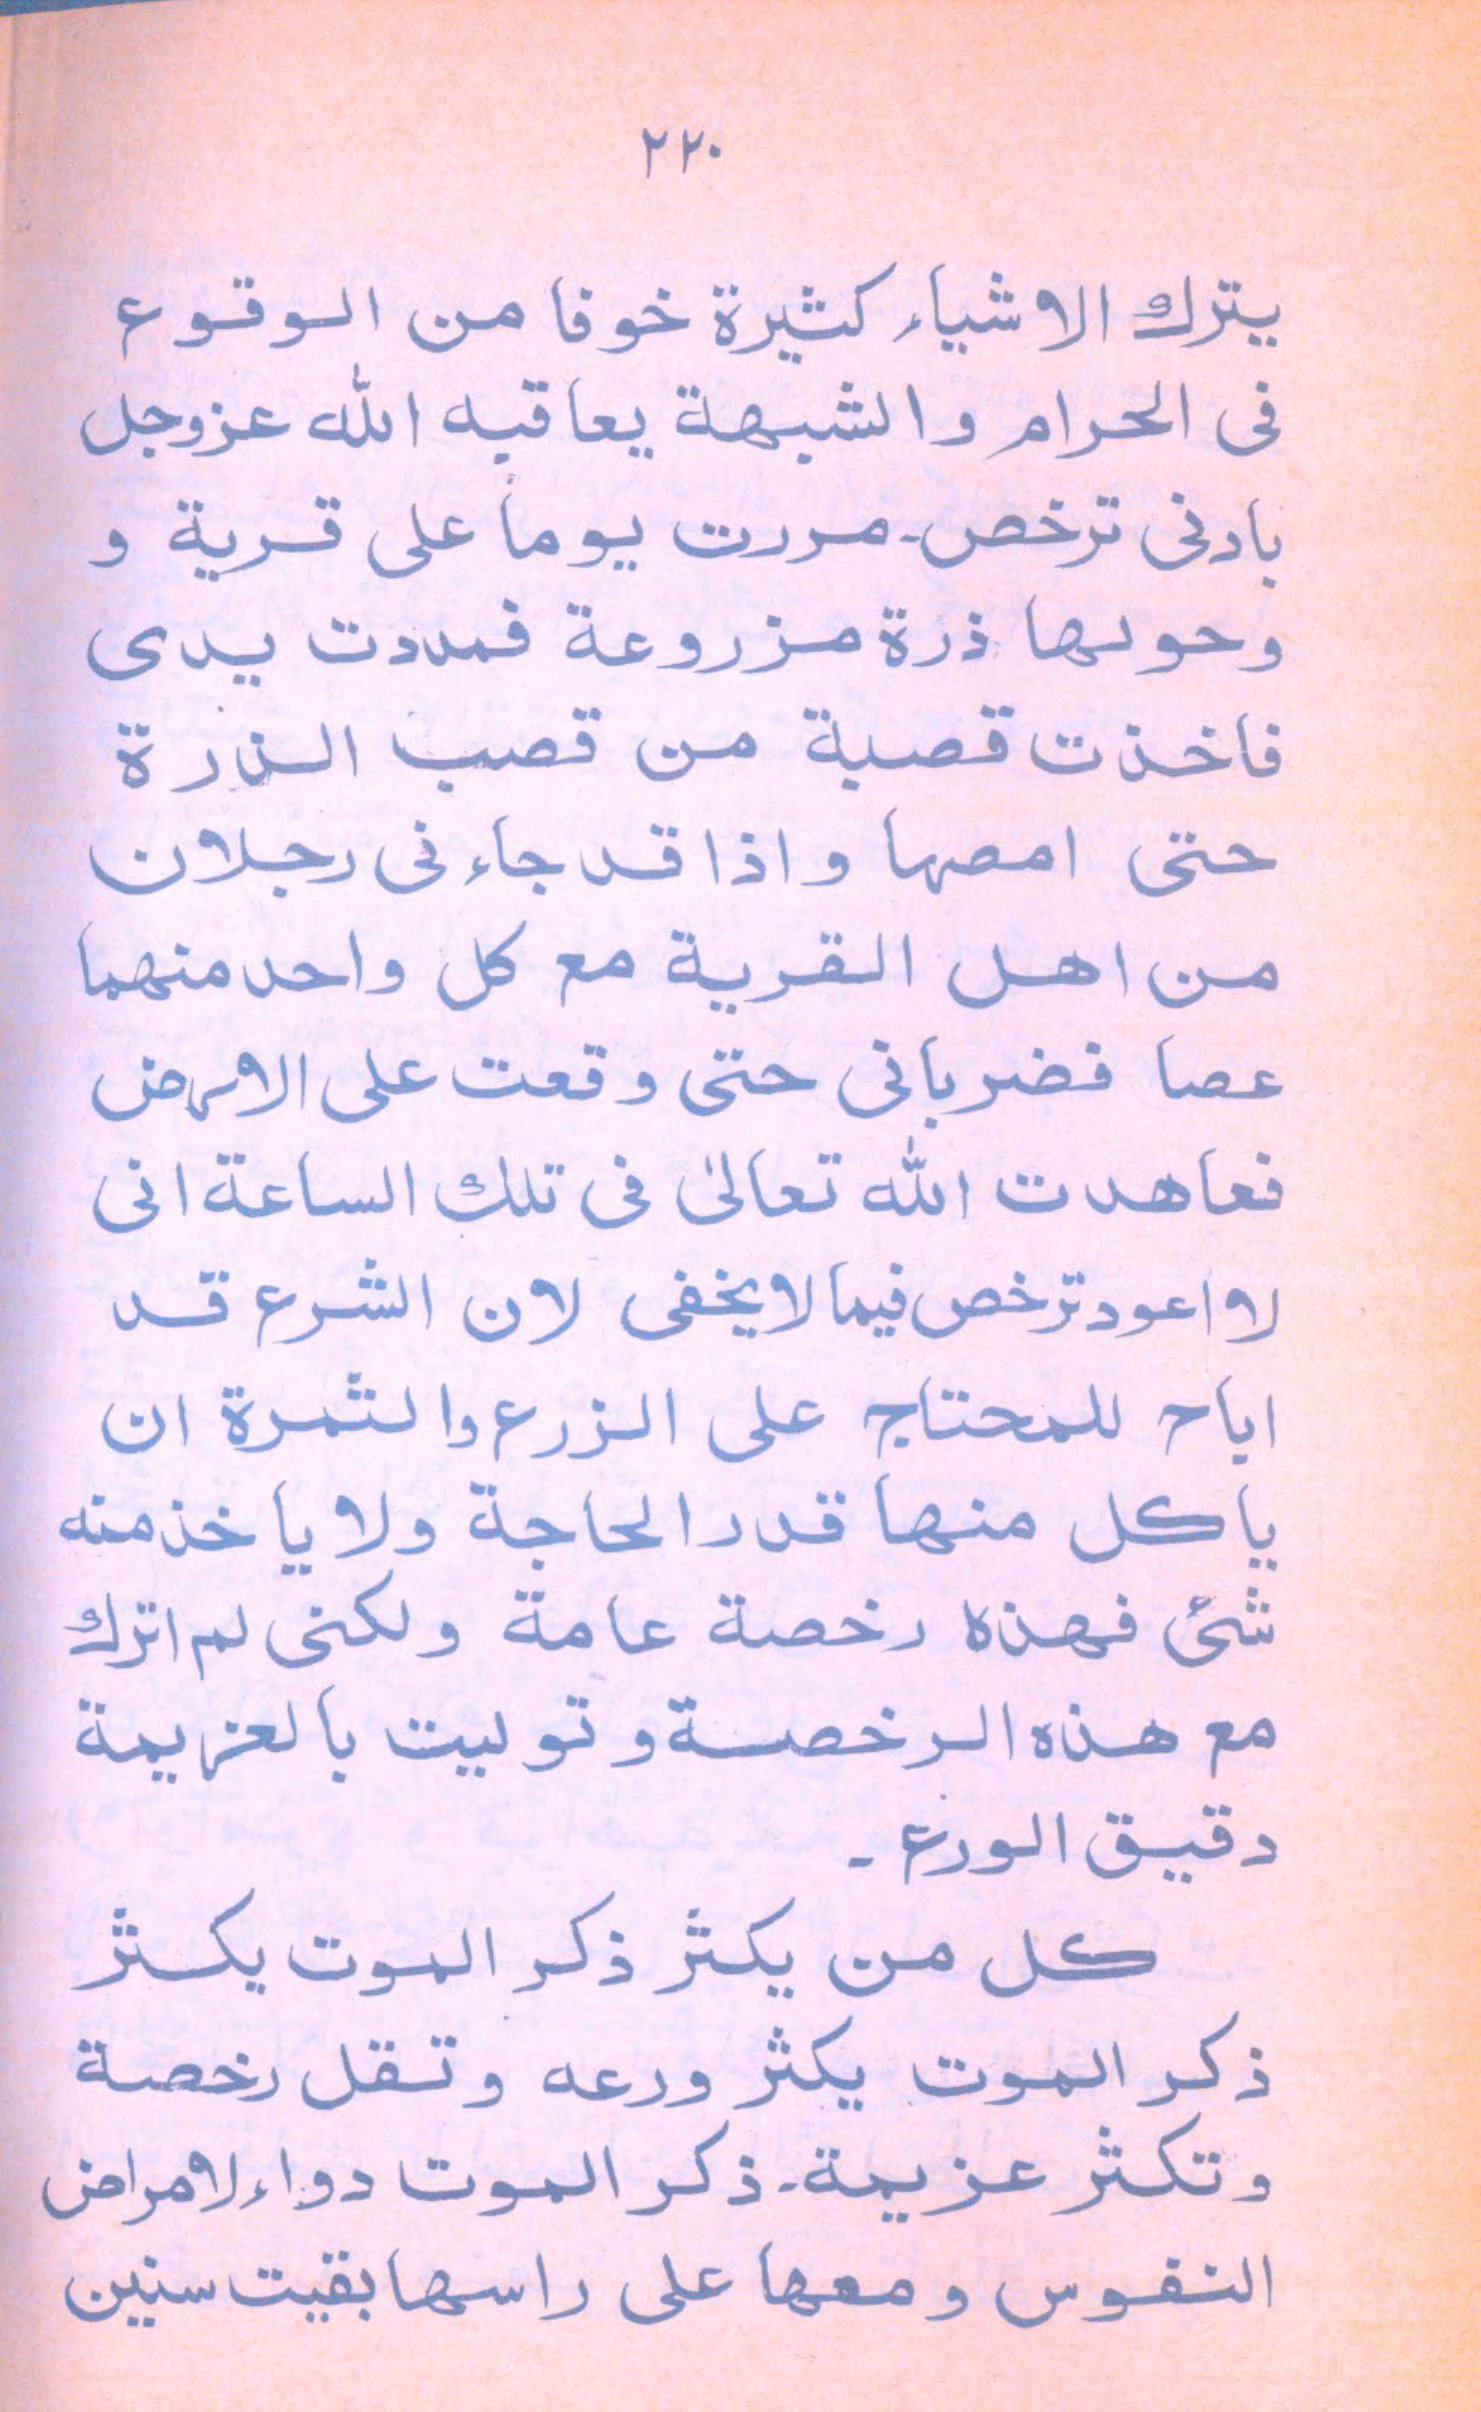 ۲۲۰
يترك الاشياء كثيرة خوفا من الوقوع
فى الحرام والشبهة يعاقبه الله عزوجل
بادنى ترخص۔ مررت يوما على قرية و
وحولها ذرة مزروعة فمددت يدى
فاخذت قصبة من قصب الذرة
حتى امصها واذا قد جاءنى رجلان
من اهل القرية مع كل واحد منهما
عصا فضربانى حتى وقعت على الارض
فعاهدت الله تعالىٰ فى تلك الساعة انى
لا اعود ترخص فيما لا يخفى لان الشرع قد
اباح للمحتاج على الزرع والثمرة ان
ياكل منها قدر الحاجة ولا ياخذ منه
شئ فهذه رخصة عامة ولكنى لم اترك
مع هذه الرخصة وتوليت بالعزيمة
دقيق الورع۔
كل من يكثر ذكر الموت يكثر
ذكر الموت يكثر ورعه وتقل رخصة
وتكثر عزيمة۔ ذكر الموت دواء لامراض
النفوس ومعها على راسها بقيت سنين